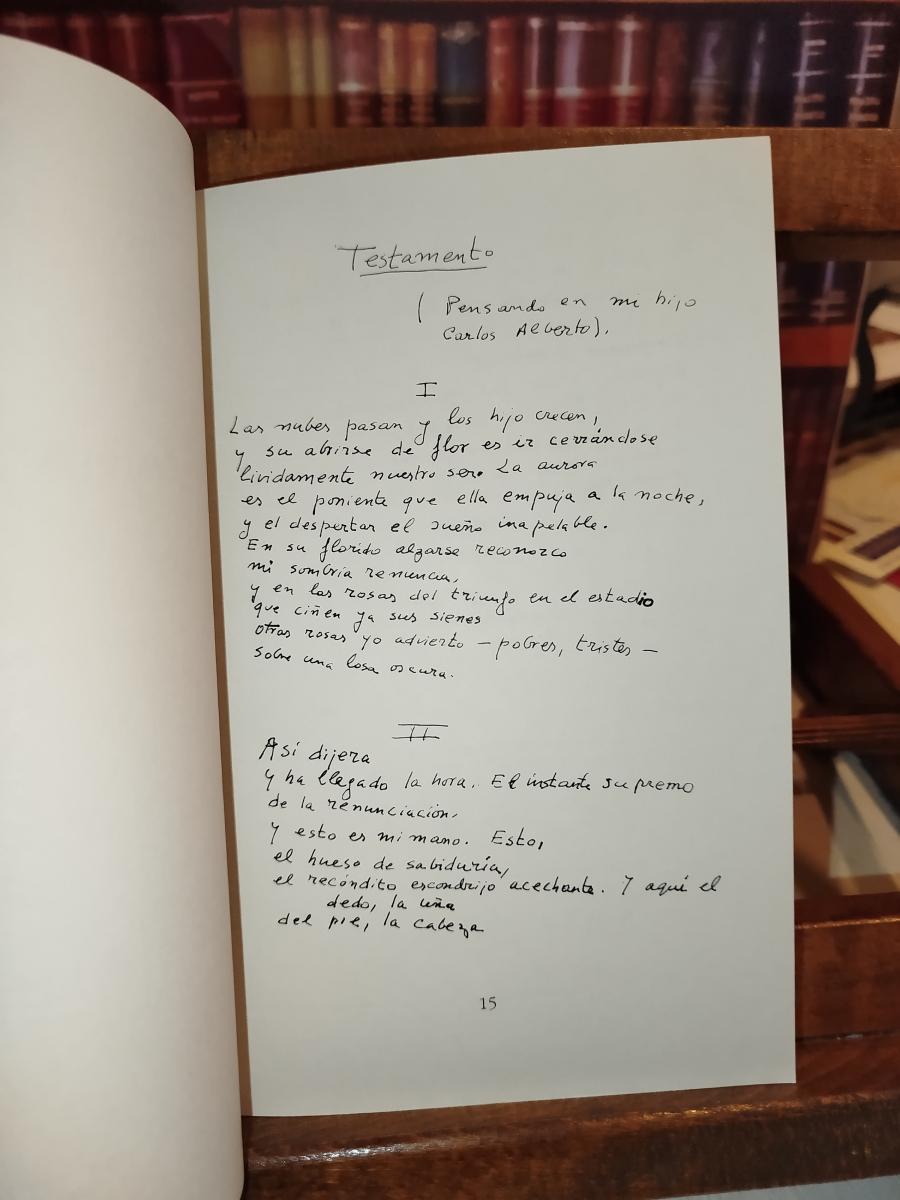 Testamento
(Pensando en mi hijo
Carlos Alberto).
I
Las nubes pasan y los hijo crecen,
y su abrirse de flor es ir cerrándose
lividamente nuestro ser. La aurora
es el poniente que ella empuja a la noche,
y el despertar el sueño inapelable.
En su florido alzarse reconozco
mi sombría renuncia,
y en las rosas del triunfo en el estadio
que ciñen ya sus sienes
otras rosas yo advierto — pobres, tristes —
sobre una losa oscura.
II
Así dijera
Y ha llegado la hora. El instante supremo
de la renunciación.
Y esto es mi mano. Esto,
el hueso de sabiduría,
el recóndito escondrijo acechante. Y aquí el
dedo, la uña
del pie, la cabeza
15